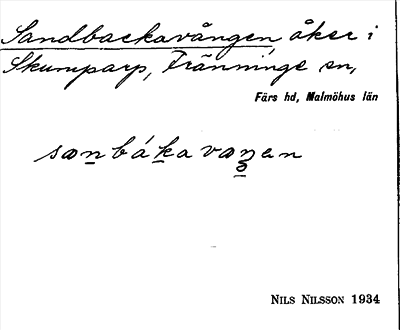 Sandbackavången åker i
Skumparp, Tränninge sn,
Färs hd, Malmöhus län
sanbákavaŋen
NILS NILSSON 1934